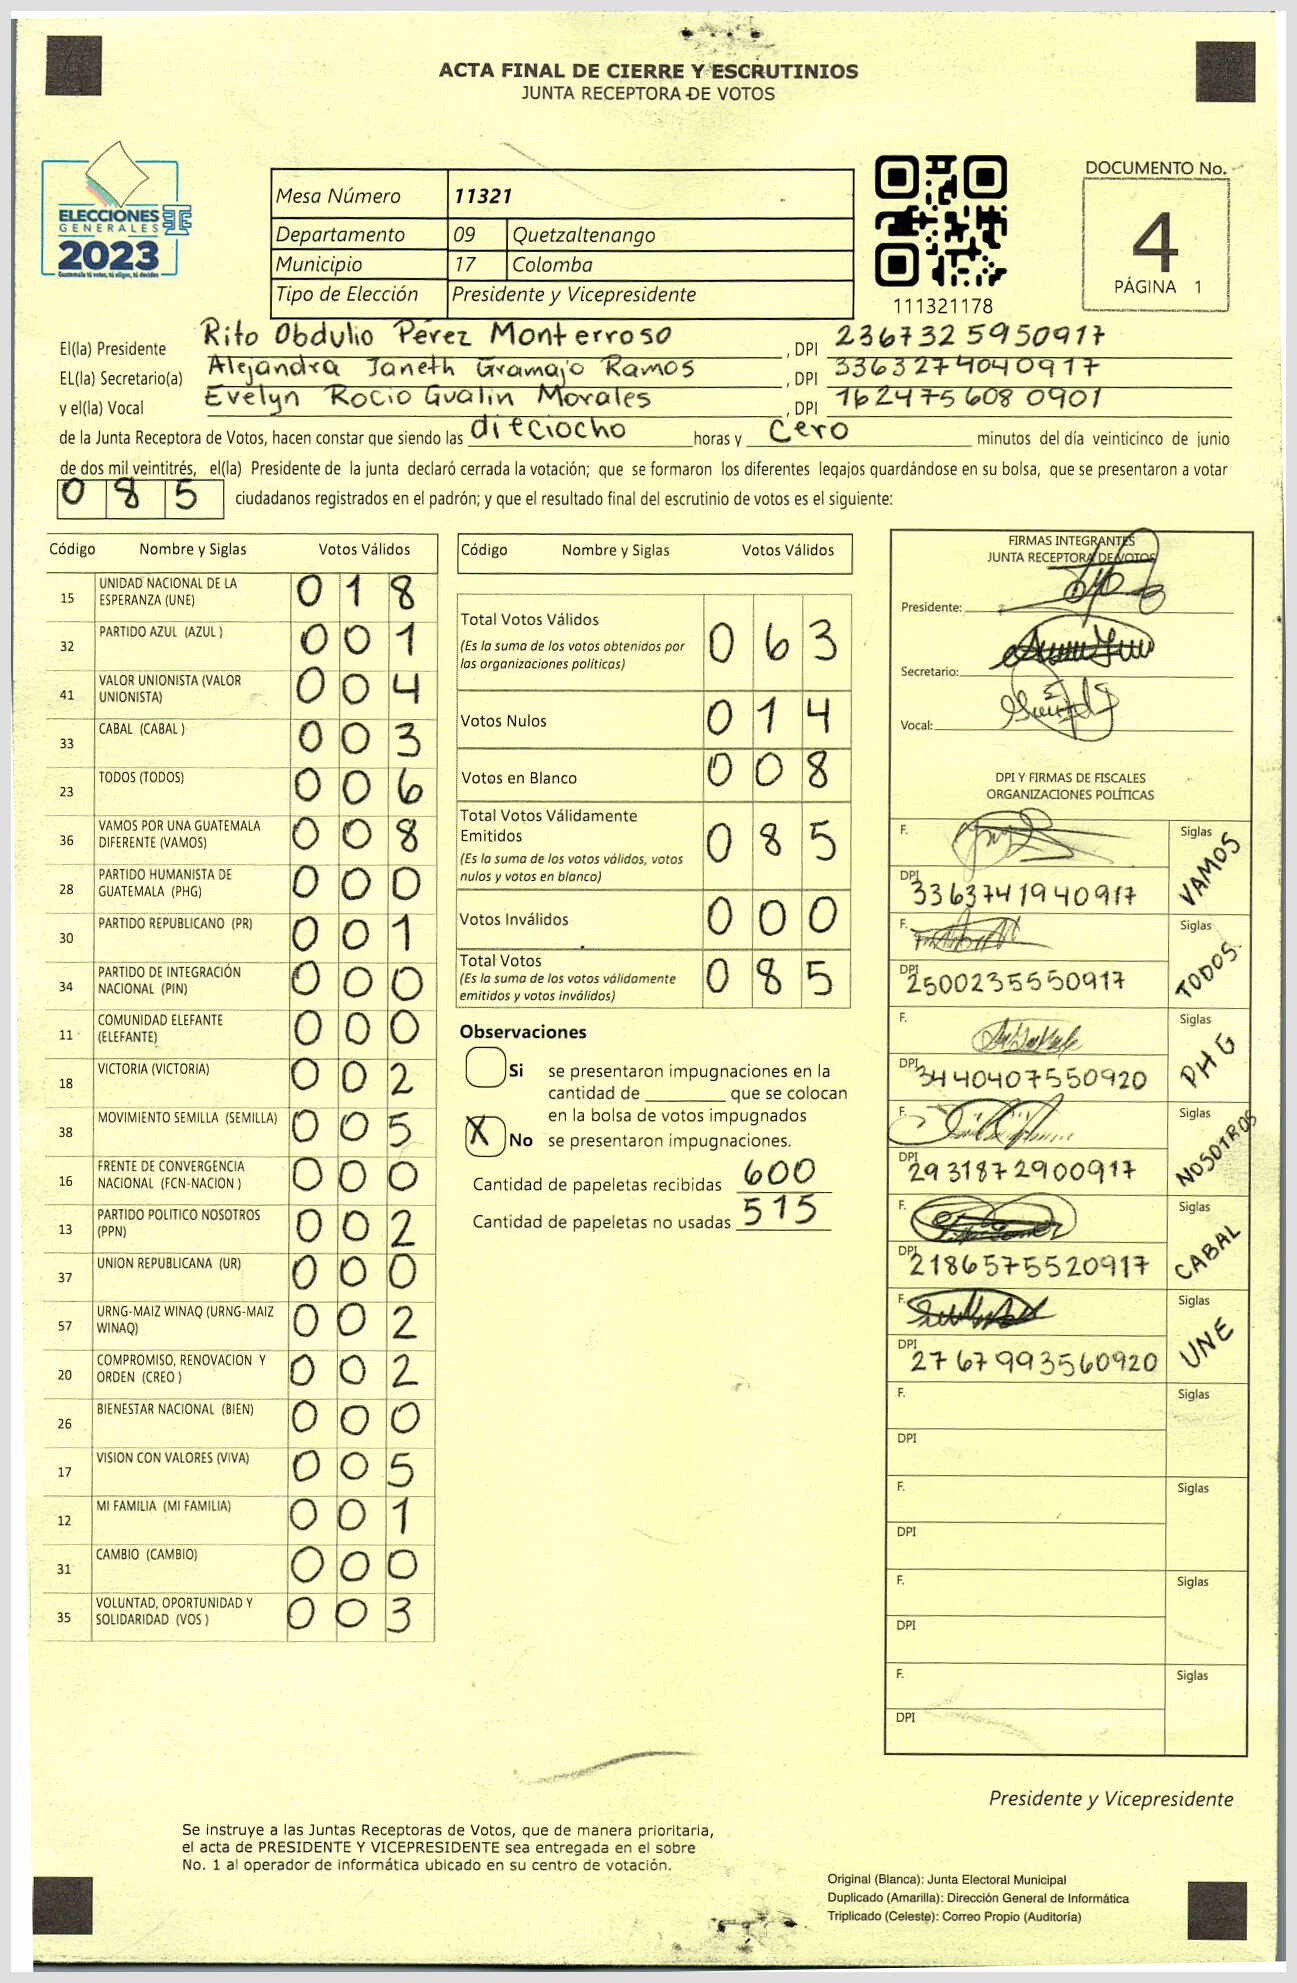 ACTA FINAL DE CIERRE Y ESCRUTINIOS
JUNTA RECEPTORA DE VOTOS
ELECCIONES
GENERALES
2023
Guatemala tú votas, tú eliges, tú decides
Mesa Número 11321
Departamento 09 Quetzaltenango
Municipio 17 Colomba
Tipo de Elección Presidente y Vicepresidente
111321178
DOCUMENTO No.
4
PÁGINA 1
El(la) Presidente Rito Obdulio Pérez Monterroso , DPI 2367325950917
EL(la) Secretario(a) Alejandra Janeth Gramajo Ramos , DPI 3363274040917
y el(la) Vocal Evelyn Rocio Gualin Morales , DPI 1624756080901
de la Junta Receptora de Votos, hacen constar que siendo las dieciocho horas y cero minutos del día veinticinco de junio
de dos mil veintitrés, el(la) Presidente de la junta declaró cerrada la votación; que se formaron los diferentes legajos guardándose en su bolsa, que se presentaron a votar
085 ciudadanos registrados en el padrón; y que el resultado final del escrutinio de votos es el siguiente:
Código Nombre y Siglas Votos Válidos
15 UNIDAD NACIONAL DE LA ESPERANZA (UNE) 018
32 PARTIDO AZUL (AZUL ) 001
41 VALOR UNIONISTA (VALOR UNIONISTA) 004
33 CABAL (CABAL ) 003
23 TODOS (TODOS) 006
36 VAMOS POR UNA GUATEMALA DIFERENTE (VAMOS) 008
28 PARTIDO HUMANISTA DE GUATEMALA (PHG) 000
30 PARTIDO REPUBLICANO (PR) 001
34 PARTIDO DE INTEGRACIÓN NACIONAL (PIN) 000
11 COMUNIDAD ELEFANTE (ELEFANTE) 000
18 VICTORIA (VICTORIA) 002
38 MOVIMIENTO SEMILLA (SEMILLA) 005
16 FRENTE DE CONVERGENCIA NACIONAL (FCN-NACION ) 000
13 PARTIDO POLITICO NOSOTROS (PPN) 002
37 UNION REPUBLICANA (UR) 000
57 URNG-MAIZ WINAQ (URNG-MAIZ WINAQ) 002
20 COMPROMISO, RENOVACION Y ORDEN (CREO ) 002
26 BIENESTAR NACIONAL (BIEN) 000
17 VISION CON VALORES (VIVA) 005
12 MI FAMILIA (MI FAMILIA) 001
31 CAMBIO (CAMBIO) 000
35 VOLUNTAD, OPORTUNIDAD Y SOLIDARIDAD (VOS ) 003
Código Nombre y Siglas Votos Válidos
Total Votos Válidos 063
(Es la suma de los votos obtenidos por
las organizaciones políticas)
Votos Nulos 014
Votos en Blanco 008
Total Votos Válidamente
Emitidos 085
(Es la suma de los votos válidos, votos
nulos y votos en blanco)
Votos Inválidos 000
Total Votos 085
(Es la suma de los votos válidamente
emitidos y votos inválidos)
Observaciones
Si se presentaron impugnaciones en la
cantidad de ________ que se colocan
en la bolsa de votos impugnados
X No se presentaron impugnaciones.
Cantidad de papeletas recibidas 600
Cantidad de papeletas no usadas 515
FIRMAS INTEGRANTES
JUNTA RECEPTORA DE VOTOS
Presidente:
Secretario:
Vocal:
DPI Y FIRMAS DE FISCALES
ORGANIZACIONES POLÍTICAS
F. Siglas VAMOS
DPI 3363741940917
F. Siglas TODOS.
DPI 2500235550917
F. Siglas PHG
DPI 3440407550920
F. Siglas NOSOTROS
DPI 2931872900917
F. Siglas CABAL
DPI 2186575520917
F. Siglas UNE
DPI 2767993560920
F. Siglas
DPI
F. Siglas
DPI
F. Siglas
DPI
F. Siglas
DPI
Presidente y Vicepresidente
Se instruye a las Juntas Receptoras de Votos, que de manera prioritaria,
el acta de PRESIDENTE Y VICEPRESIDENTE sea entregada en el sobre
No. 1 al operador de informática ubicado en su centro de votación.
Original (Blanca): Junta Electoral Municipal
Duplicado (Amarilla): Dirección General de Informática
Triplicado (Celeste): Correo Propio (Auditoría)